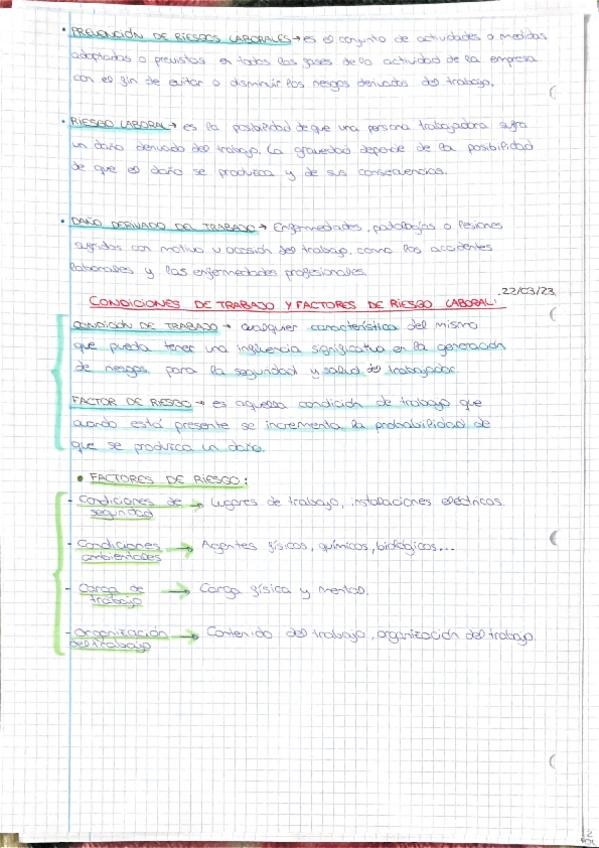 • PREVENCIÓN DE RIESGOS LABORALES → es el conjunto de actividades o medidas
adoptadas o previstas en todas las fases de la actividad de la empresa
con el fin de evitar o disminuir los riesgos derivados del trabajo.
• RIESGO LABORAL → es la posibilidad de que una persona trabajadora sufra
un daño derivado del trabajo. La gravedad depende de la posibilidad
de que el daño se produzca y de sus consecuencias.
• DAÑO DERIVADO DEL TRABAJO → Enfermedades, patologías o lesiones
sufridas con motivo u ocasión del trabajo, como los accidentes
laborales y las enfermedades profesionales.
22/03/23
CONDICIONES DE TRABAJO Y FACTORES DE RIESGO LABORAL:
CONDICIÓN DE TRABAJO → cualquier característica del mismo
que pueda tener una influencia significativa en la generación
de riesgos para la seguridad y salud del trabajador
FACTOR DE RIESGO → es aquella condición de trabajo que
cuando está presente se incrementa la probabilidad de
que se produzca un daño.
• FACTORES DE RIESGO:
- Condiciones de seguridad → Lugares de trabajo, instalaciones eléctricas.
- Condiciones ambientales → Agentes físicos, químicos, biológicos...
- Carga de trabajo → Carga física y mental.
- Organización del trabajo → Contenido del trabajo, organización del trabajo.